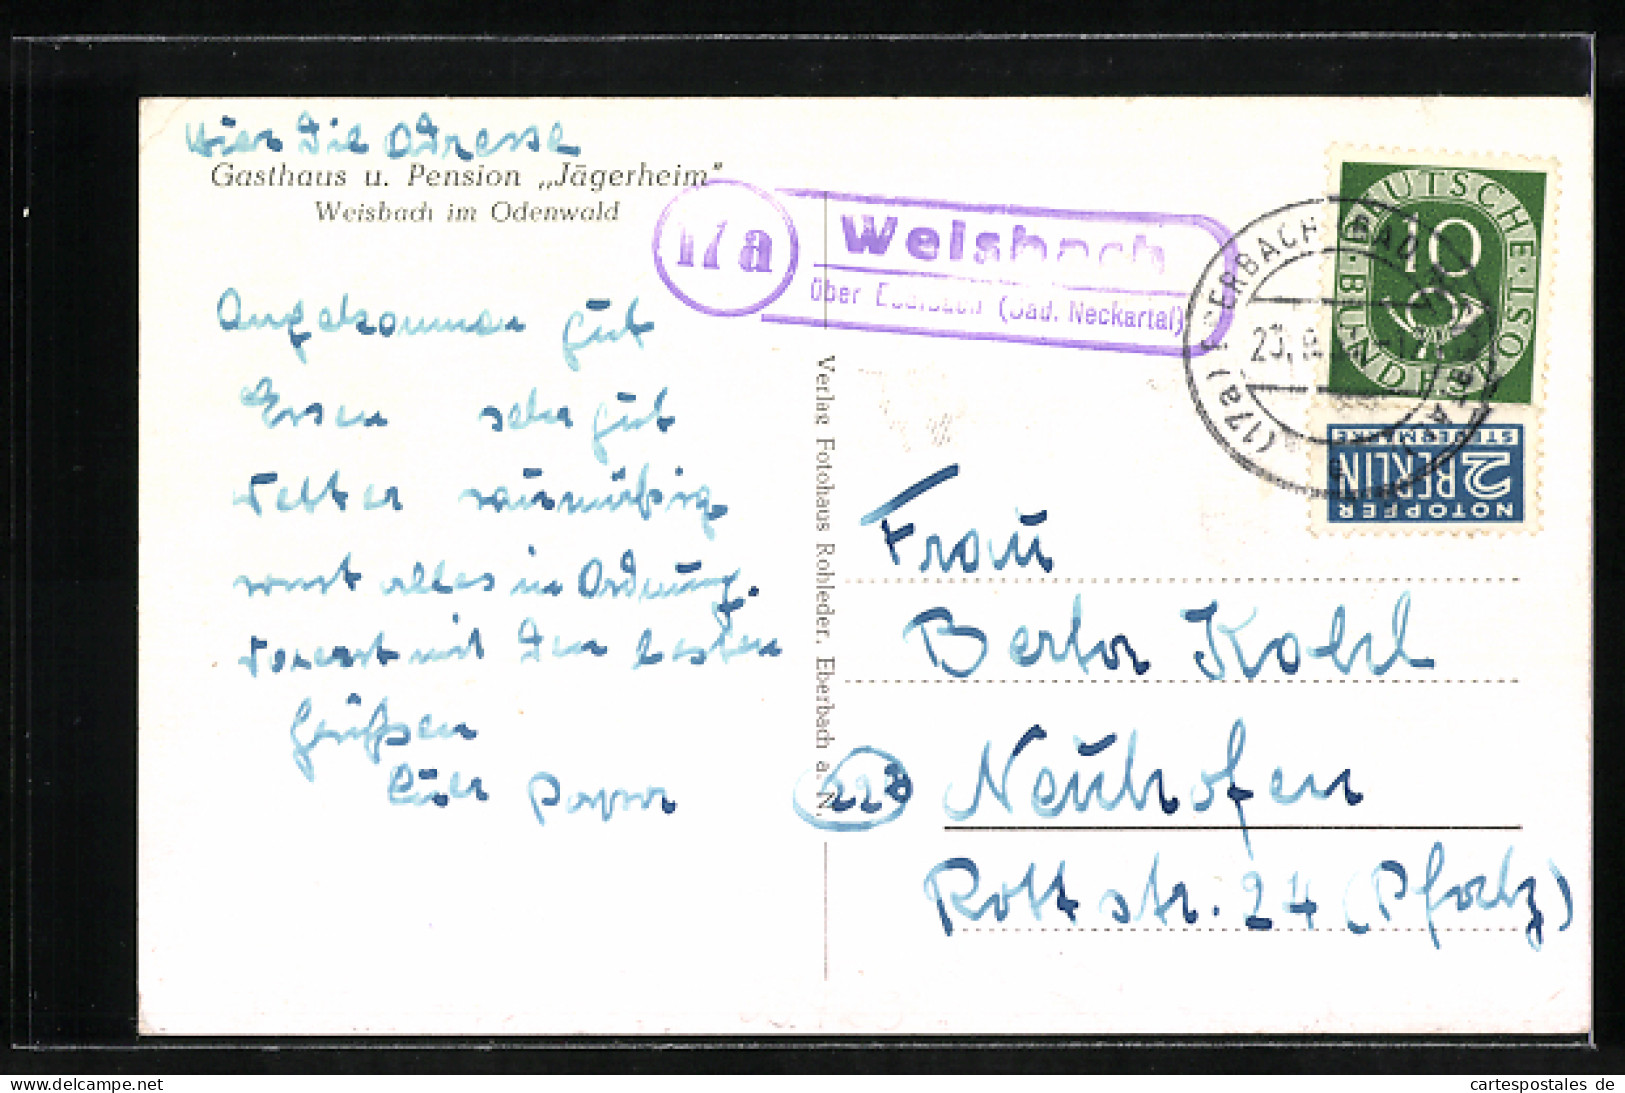 Hier die Adresse
Gasthaus u. Pension „Jägerheim"
Weisbach im Odenwald
Angekommen gut
Essen sehr gut
Wetter
sonst alles in Ordnung.
mit den besten
Grüßen
Euer Papa
17a
Weisbach
über Eberbach (Bad. Neckartal)
(17a) EBERBACH (BADEN)
DEUTSCHE BUNDESPOST
10
NOTOPFER
2 BERLIN
STEUERMARKE
Verlag Fotohaus Rohleder, Eberbach a. N.
Frau
Berta Kohl
22b Neuhofen
Rottstr. 24 (Pfalz)
cartespostales de